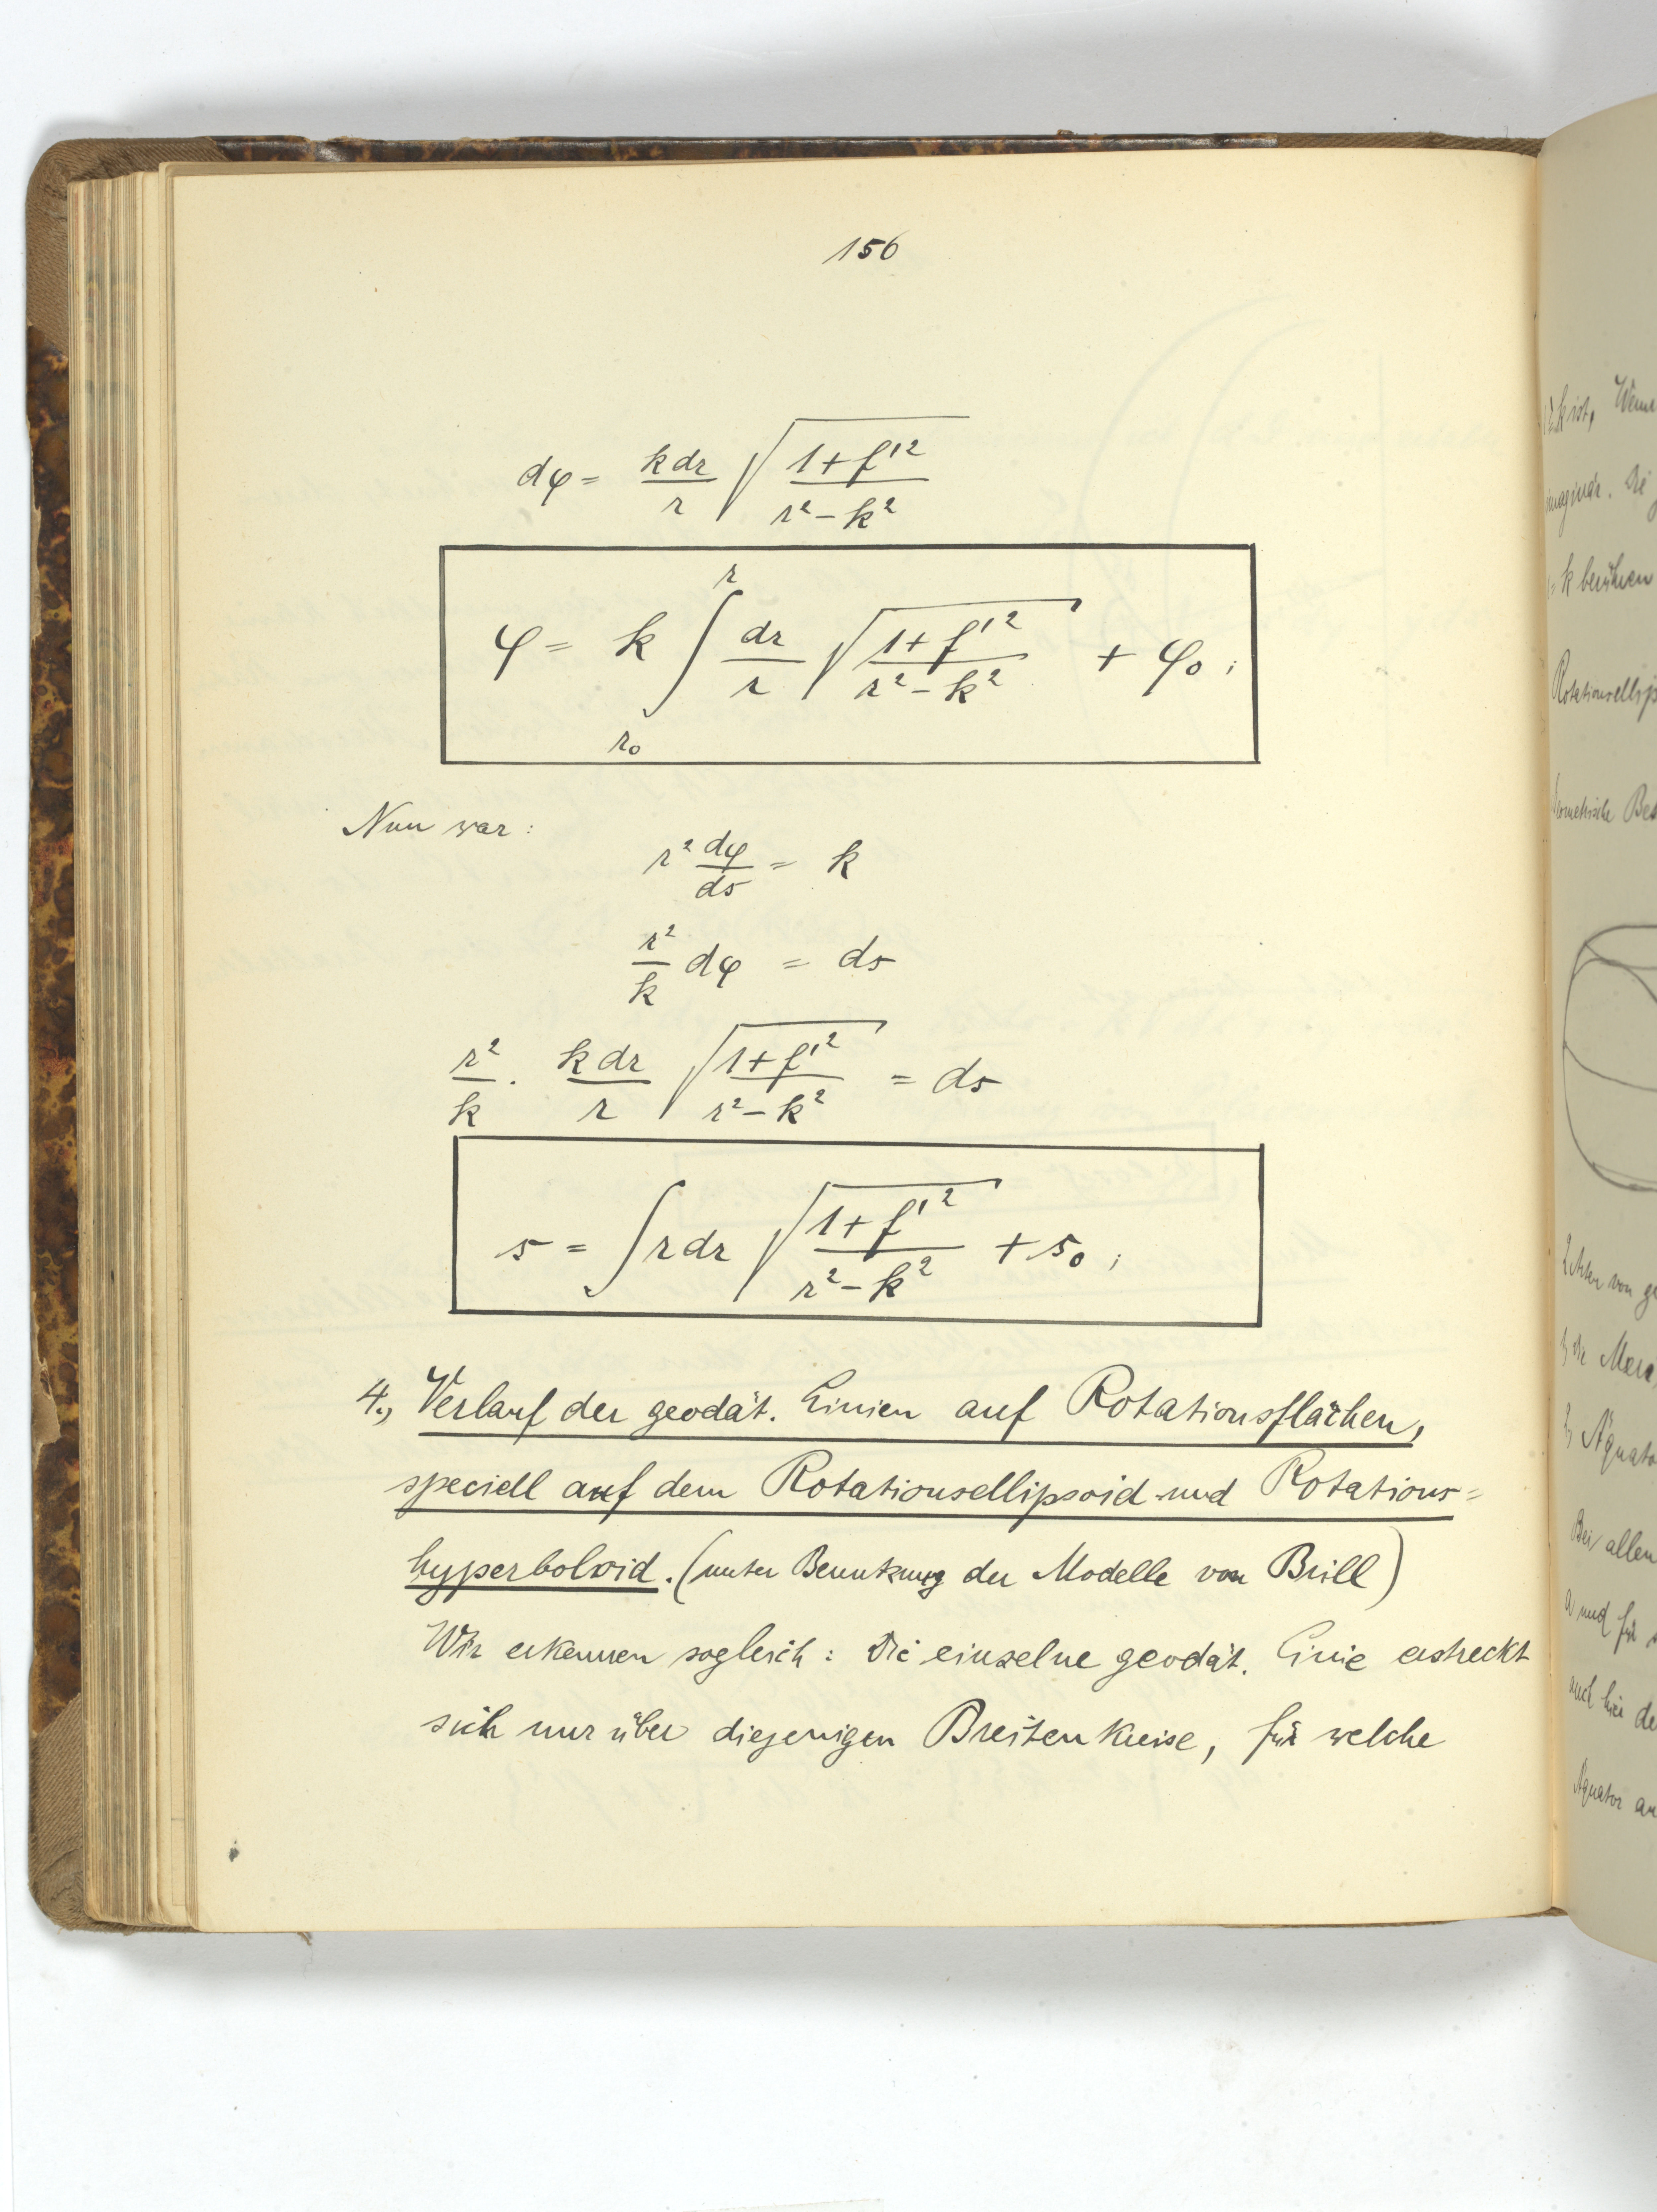 156
dφ = k dr/r √(1+f'²/r²−k²)
φ = k ∫_{r₀}^{r} dr/r √(1+f'²/r²−k²) + φ₀;
Nun war:
r² dφ/ds = k
r²/k dφ = ds
r²/k · k dr/r √(1+f'²/r²−k²) = ds
s = ∫ r dr √(1+f'²/r²−k²) + s₀;
4., Verlauf der geodät. Linien auf Rotationsflächen,
speciell auf dem Rotationsellipsoid und Rotations=
hyperboloid. (unter Benutzung der Modelle von Brill)
Wir erkennen sogleich: Die einzelne geodät. Linie erstreckt
sich nur über diejenigen Breitenkreise, für welche
k ist,
imaginär. Die
= k berühren
Rotationsellip
ometrische
von
die
Äquato
Bei allen
a und für
auch hier de
Äquator an